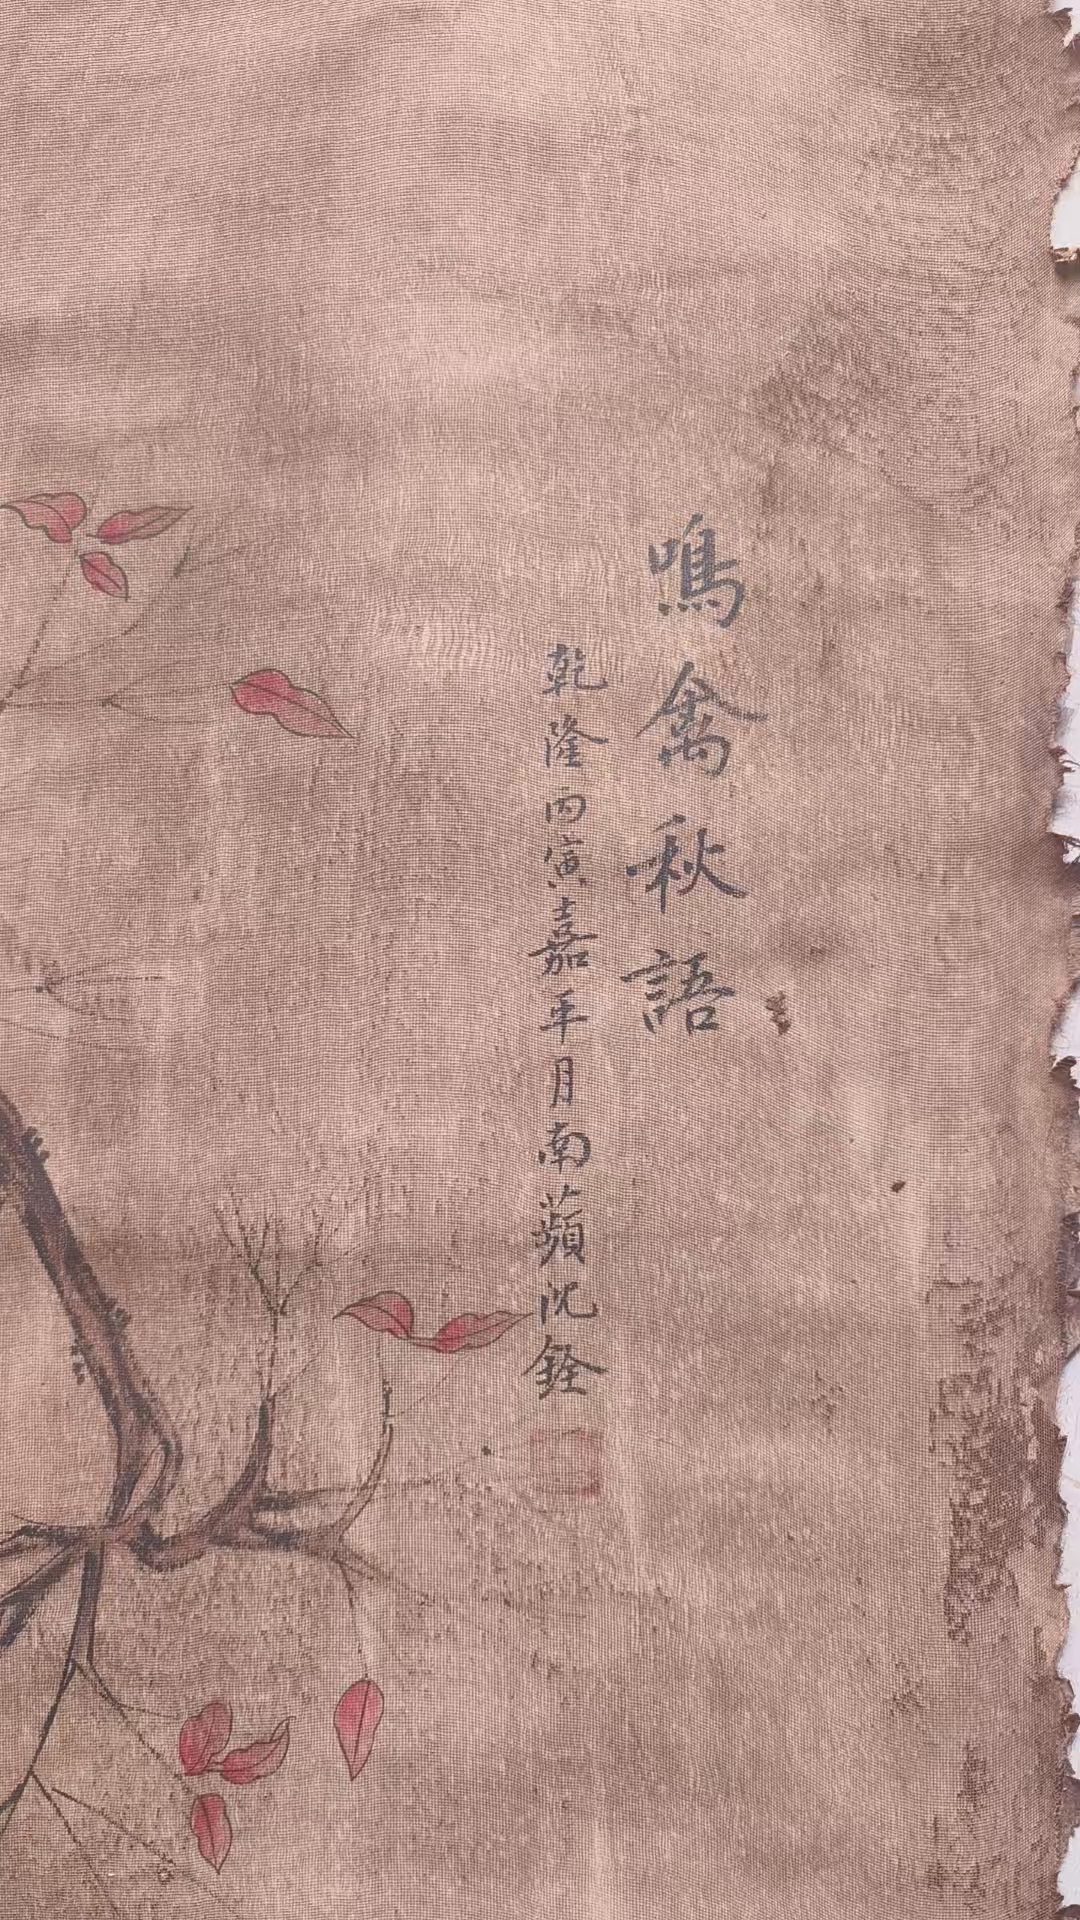 鳴禽秋語
乾隆丙寅嘉平月南蘋沈銓